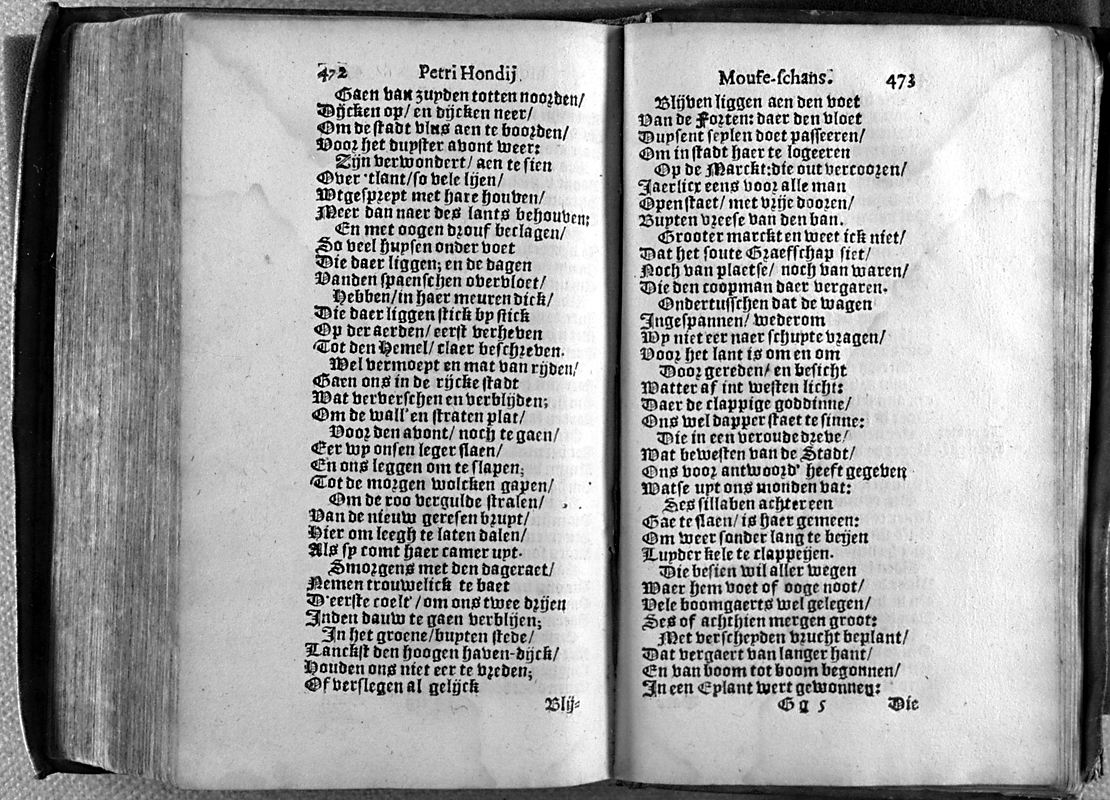 472 Petri Hondij
Gaen van zuyden totten noorden/
Dijcken op/ en dijcken neer/
Om de stadt vlus aen te boorden/
Voor het duyster avont weer:
Zijn verwondert/ aen te sien
Over 'tlant/so vele lijen/
Wtgespreyt met hare houven/
Meer dan naer des lants behouven:
En met oogen drouf beclagen/
So veel huysen onder voet
Die daer liggen; en de dagen
Vanden spaenschen overvloet/
Hebben/in haer meuren dick/
Die daer liggen stick by stick
Op der aerden/ eerst verheven
Tot den Hemel/ claer beschreven.
Wel vermoeyt en mat van rijden/
Gaen ons in de rijcke stadt
Wat ververschen en verblijden;
Om de wall' en straten plat/
Voor den avont/ noch te gaen/
Eer wy onsen leger slaen/
En ons leggen om te slapen;
Tot de morgen wolcken gapen/
Om de roo vergulde stralen/
Van de nieuw geresen bruyt/
Hier om leegh te laten dalen/
Als sy comt haer camer uyt.
Smorgens met den dageraet/
Nemen trouwelick te baet
D'eerste coelt'/om ons twee drijen
Inden dauw te gaen verblijen;
In het groene/buyten stede/
Lanckst den hoogen haven-dijck/
Houden ons niet eer te vreden;
Of verslegen al gelijck
Blij-
Moufe-schans. 473
Blijven liggen aen den voet
Van de Forten: daer den vloet
Duysent seylen doet passeeren/
Om in stadt haer te logeeren
Op de Marckt:die out vercooren/
Jaerlicx eens voor alle man
Open staet/ met vrije dooren/
Buyten vreese van den ban.
Grooter marckt en weet ick niet/
Dat het soute Graefschap siet/
Noch van plaetse/ noch van waren/
Die den coopman daer vergaren.
Ondertusschen dat de wagen
Ingespannen/ wederom
Wy niet eer naer schuyte vragen/
Voor het lant is om en om
Door gereden/ en besicht
Watter af int westen licht:
Daer de clappige goddinne/
Ons wel dapper staet te sinne:
Die in een veroude dreve/
Wat bewesten van de Stadt/
Ons voor antwoord' heeft gegeven
Watse uyt ons monden vat:
Ses sillaben achter een
Gae te slaen/ is haer gemeen:
Om weer sonder lang te beijen
Luyder kele te clappeijen.
Die besien wil aller wegen
Waer hem voet of ooge noot/
Vele boomgaerts wel gelegen/
Ses of achthien mergen groot:
Met verscheyden vrucht beplant/
Dat vergaert van langer hant/
En van boom tot boom begonnen/
In een Eylant wert gewonnen:
Gg 5 Die